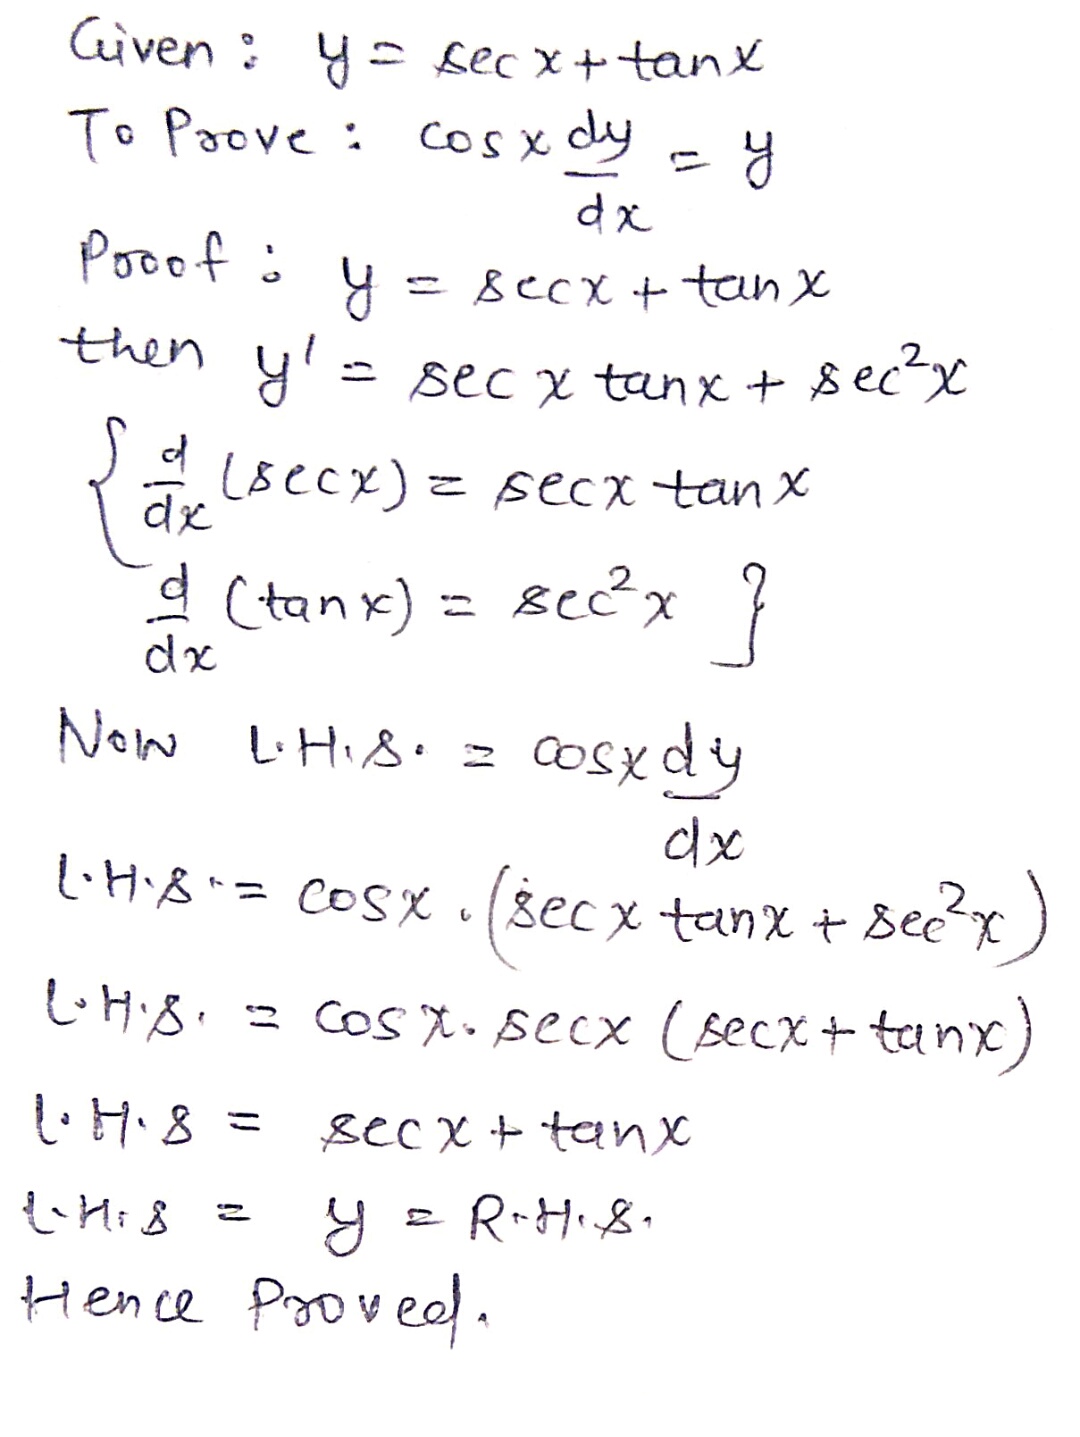 Given : y = sec x + tan x
To Prove : cos x dy/dx = y
Proof : y = sec x + tan x
then y' = sec x tan x + sec²x
{ d/dx (sec x) = sec x tan x
d/dx (tan x) = sec²x }
Now L.H.S. = cos x dy/dx
L.H.S. = cos x . (sec x tan x + sec²x)
L.H.S. = cos x . sec x (sec x + tan x)
L.H.S = sec x + tan x
L.H.S = y = R.H.S.
Hence Proved.